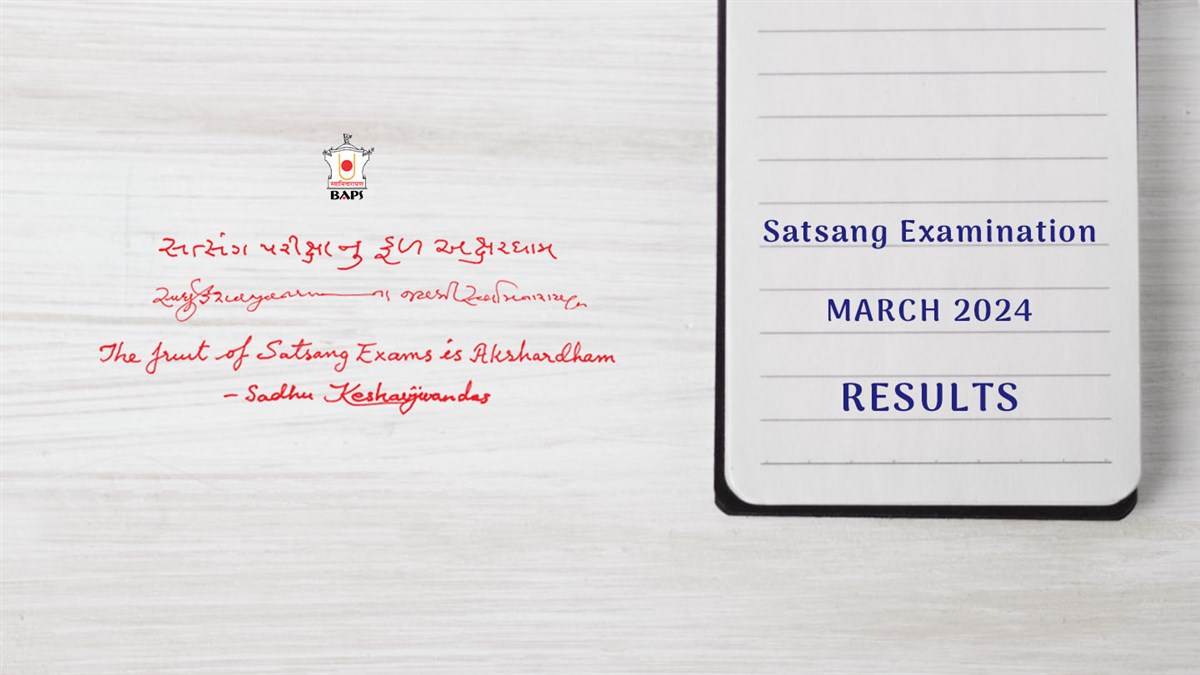 स्वामिनारायण
BAPS
સત્સંગ પરીક્ષાનુ ફળ અક્ષરધામ
ના જયશ્રી સ્વામિનારાયણ
The fruit of Satsang Exams is Akshardham
- Sadhu Keshavjivandas
Satsang Examination
MARCH 2024
RESULTS